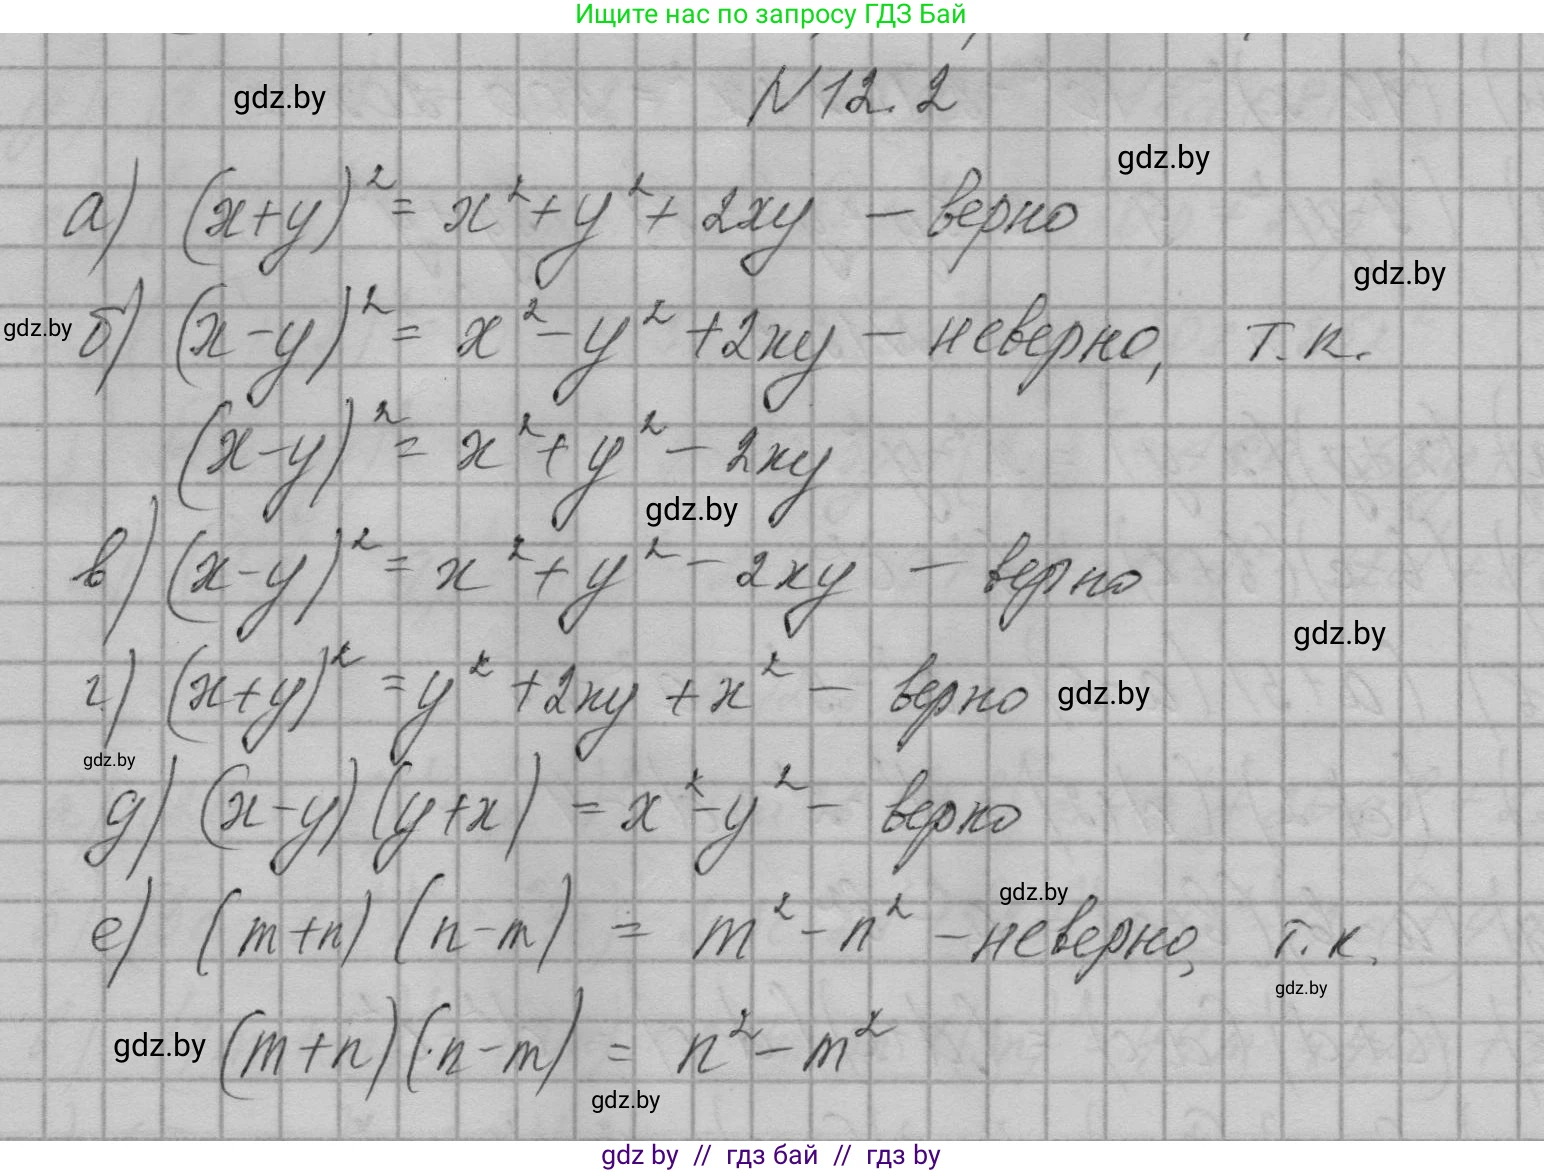 Ищите нас по запросу ГДЗ Бай
N 12.2
gdz.by
gdz.by
а) (x+y)² = x² + y² + 2xy — верно
gdz.by
gdz.by
б) (x-y)² = x² - y² + 2xy — неверно, т.к.
(x-y)² = x² + y² - 2xy
gdz.by
в) (x-y)² = x² + y² - 2xy — верно
gdz.by
г) (x+y)² = y² + 2xy + x² — верно
gdz.by
gdz.by
д) (x-y)(y+x) = x² - y² — верно
gdz.by
е) (m+n)(n-m) = m² - n² — неверно, т.к.
gdz.by
gdz.by
(m+n)(n-m) = n² - m²
gdz.by
gdz by // гдз бай // гдз by